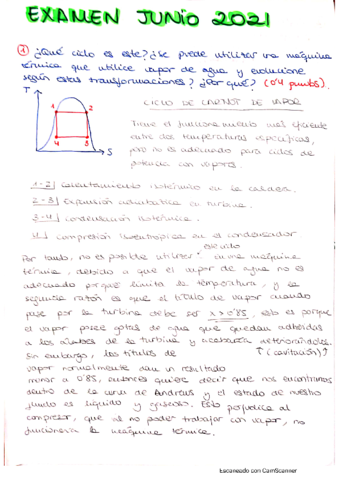 EXAMEN JUNIO 2021
① ¿Qué ciclo es este? ¿Se puede utilizar una máquina
térmica que utilice vapor de agua y evolucione
según estas transformaciones? ¿Por qué? (0'4 puntos).
T
1
2
4
3
S
CICLO DE CARNOT DE VAPOR
Tiene el funcionamiento más eficiente
entre dos temperaturas específicas,
pero no es adecuado para ciclos de
potencia con vapores.
1-2| calentamiento isotérmico en la caldera.
2-3| expansión adiabática en turbina.
3-4| condensación isotérmica.
4-1 compresión isentrópica en el condensador
este ciclo
Por tanto, no es posible utilizar en una máquina
térmica, debido a que el vapor de agua no es
adecuado porque limita la temperatura, y la
segunda razón es que el título de vapor cuando
pase por la turbina debe ser x>0'85, esto es porque
el vapor posee gotas de agua que quedan adheridas
a los álabes de la turbina y acabaría deteriorándolos.
↑ (cavitación)↑
Sin embargo, los títulos de
vapor normalmente dan un resultado
menor a 0'85, entonces quiere decir que nos encontramos
dentro de la curva de Andrews y el estado de nuestro
fluido es líquido y gaseoso. Esto perjudica al
compresor, que al no poder trabajar con vapor, no
funcionaría la máquina térmica.
Escaneado con CamScanner